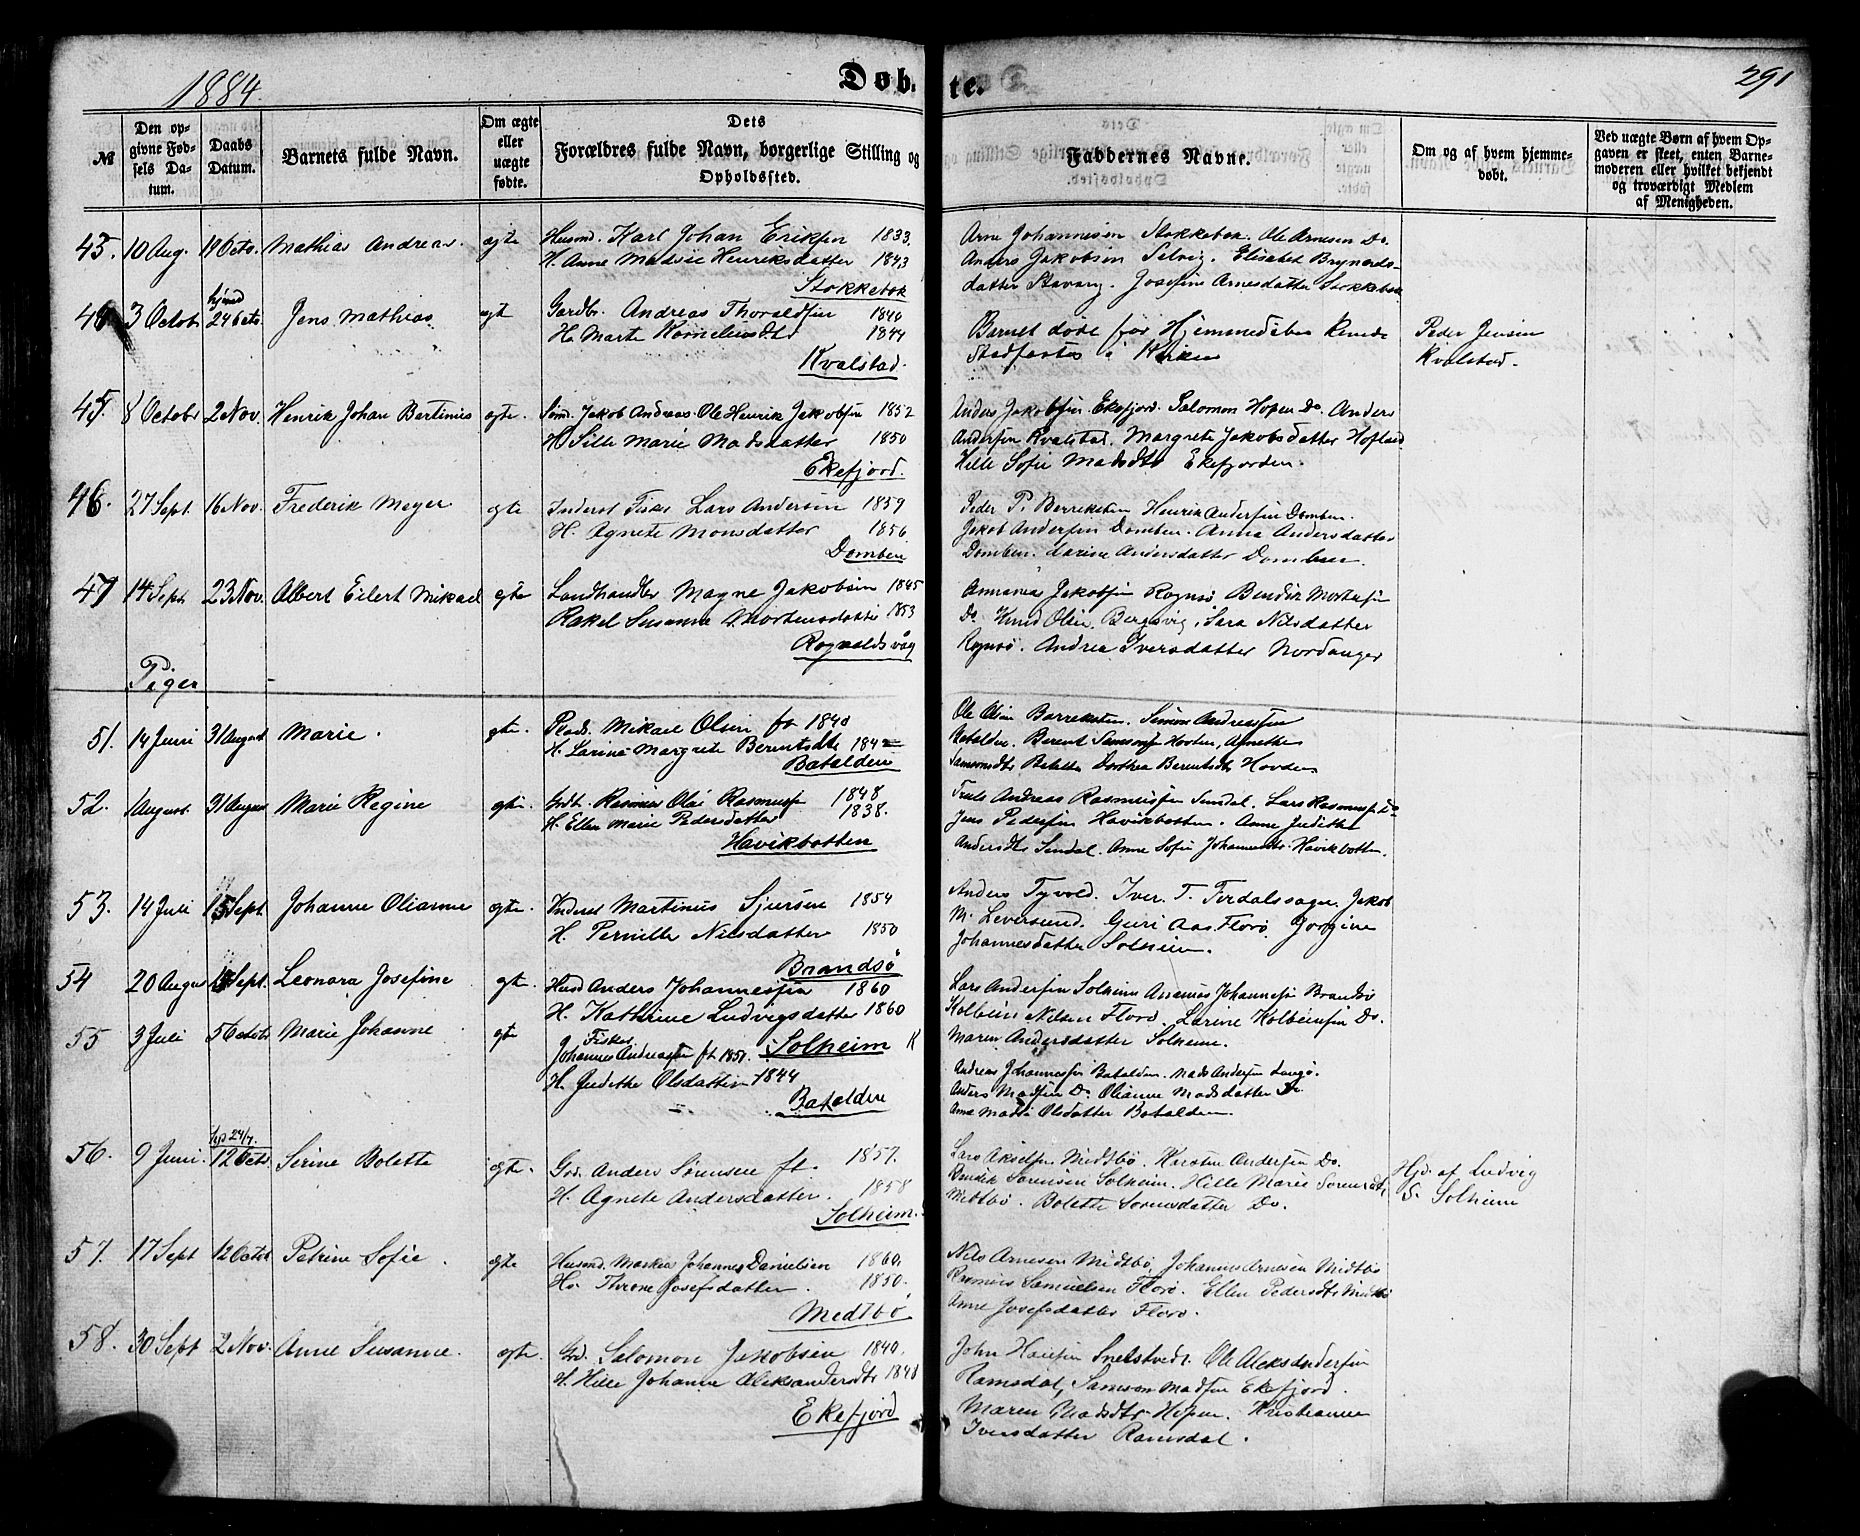 1884.
Døb-
te.
291
№
Den opgivne Fødsels Datum.
Daabs Datum.
Barnets fulde Navn.
Om ægte eller uægte fødte.
Dets Forældres fulde Navn, borgerlige Stilling og Opholdssted.
Faddernes Navne.
Om og af hvem hjemmedøbt.
Ved uægte Børn af hvem Opgaven er skeet, enten Barnemoderen eller hvilket bekjendt og troværdigt Medlem af Menigheden.
43. 10 Aug. Octo. Mathias Andreas. egte Husmd. Karl Johan Eriksen 1833.
H. Anne Henriksdatter 1843
Stokkebøk
Arne Johannesen Stokkebøk. Ole Arnesen Do.
Anders Jakobsen Selvig. Elisabet
datter Stavang. Josefine Arnesdatter Stokkebøk
3 Octob hjmd 24 Octo. Jens Mathias egt Gardbr. Andreas Thoraldsen 1840
H. Marte Korneliusdtr 1844
Kvalstad.
Barnet døde før Hjemmedaaben kunde
Stadfæstes i Kirken
Peder Jensen
Kvalstad.
45. 8 Octobr 2 Nov. Henrik Johan Bertinus egte. Jakob Andreas Ole Henrik Jakobsen 1852
H. Sille Marie Madsdatter 1850
Ekefjord.
Anders Jakobsen Ekefjord. Salomon Hopen Do. Anders
Andersen Kvalstad. Margrete Jakobsdatter
Hille Sofie Madsdtr Ekefjorden.
46. 27 Sept. 16 Nov. Frederik Meyer egte Inderst Fisker Lars Andersen 1859
H. Agnete Monsdatter 1856
Domben
Peder P. Barreksten Henrik Andersen Domben.
Jakob Andersen Domben. Anna Andersdatter
Domben. Larine Andersdatter Domben.
47 14 Sept 23 Nov. Albert Eilert Mikael egte Landhandler Magne Jakobsen 1845
Rakel Susanne Mortensdatter 1853
Rognaldsvåg
Ananias Jakobsen Rognsø Bendik Mortensen
Do. Knud Olsen Bergsvig, Sara Nilsdatter
Rognsø. Andrea Iversdatter Nordanger
Piger
51. 14 Juni 31 August Marie. egte. Mikael Olsen ft 1840
H. Larine Margrete Berentsdtr
Batalden
Ole Olsen Barreksten. Simon Andreassen
Batalden. Berent Samsons Hovden, Agnethe
Samsonsdtr Batalden Dorthea Berentsdtr Hovden
52. 1 August. 31 August Marie Regine egte. Grdb. Rasmus Olai Rasmussen 1848
H. Ellen Marie Pedersdatter 1838.
Havikbotten
Truls Andreas Rasmussen Sendal. Lars Rasmussen Do
Jens Pedersen Havikbotten. Anne Judithe
Andersdtr Sendal. Anne Sofie Johannesdtr Havikbotten.
53. 14 Juli Sept. Johanne Olianne egte. Inderst Martinus Sjursen 1854
H. Pernille Nilsdatter 1850
Brandsø
Anders Tyvold. Iver T. Jakob
M. Leversund. Guri Aas Florø. Jorgine
Johannesdatter Solheim.
54 20 August Sept. Leonora Josefine egte. Husd Anders Johannessen 1860
H. Kathrine Ludvigsdatter 1860
Solheim
Lars Andersen Solheim Ananias Johannesen Brandsø
Kolbein Nilsen Florø. Larine Kolbeinsen Do.
Maren Andersdatter Solheim.
55 3 Juli 5 October Marie Johanne egte Fisker
Johannes Andreassen ft 1851.
H. Judithe Olsdatter 1844
Batalden
Andreas Johannessen Batalden. Mads Andersen Langø.
Anders Madsen Do. Olianne Madsdatter Do
Anne Olsdatter Batalden.
56. 9 Juni. hjd 24/7. 12 Octo. Serine Bolette egte. Grd. Anders Sørensen ft. 1857.
H. Agnete Andersdatter. 1858
Solheim.
Lars Midtbø. Karsten Andersen Do.
Bendik Sørensen Solheim. Hille Marie
Midtbø. Bolette Sørensdatter Do.
Hjd. af Ludvig
S. Solheim
57. 17 Sept 12 Octob Petrine Sofie. egte Husmd. Johannes Danielsen 1860.
H. Josefsdatter. 1850.
Medtbø
Nils Arnesen Midtbø, Johannes Arnesen Midtbø
Rasmus Samuelsen Florø. Ellen Pedersdtr Midtbø
Anne Josefsdatter Florø.
58. 30 Sept 2 Nov. Anne Susanne. egte. Grd. Salomon Jakobsen 1840.
H. Hille Johanne Aleksandersdtr
Ekefjord
John Hansen Ole Aleksandersen
Ramsdal, Samson Madsen Ekefjord.
Maren Madsdtr Hopen. Kristianne
Iversdatter Ramsdal.